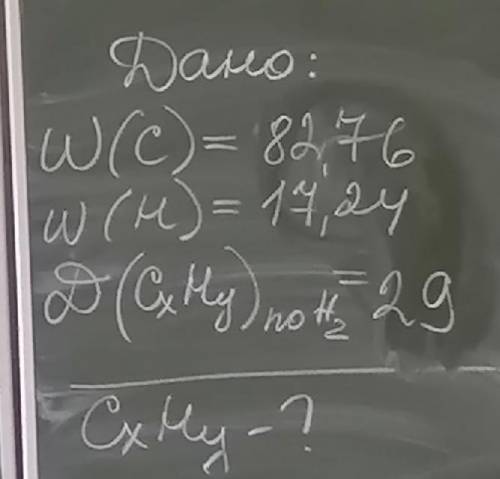 Дано:
W(C) = 82,76
W(H) = 17,24
D(CxHy)по H2 = 29
CxHy - ?